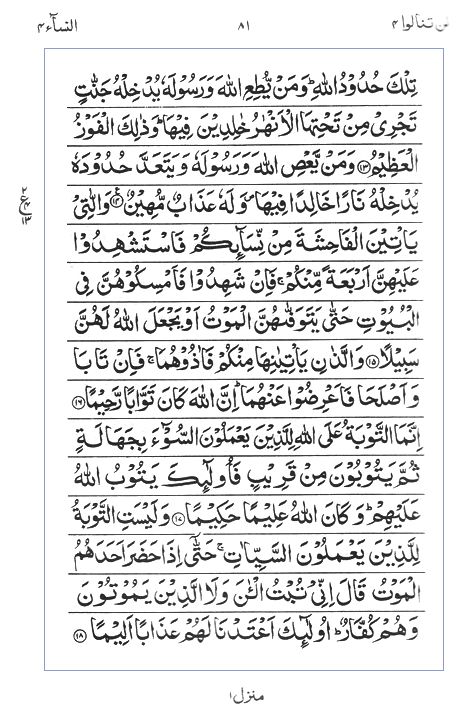 لن تنالوا ٤ ٨١ النسآء ٤
تِلْكَ حُدُوْدُ اللّٰهِ ؕ وَمَنْ يُّطِعِ اللّٰهَ وَرَسُوْلَهٗ يُدْخِلْهُ جَنّٰتٍ
تَجْرِىْ مِنْ تَحْتِهَا الْاَنْهٰرُ خٰلِدِيْنَ فِيْهَا ؕ وَذٰلِكَ الْفَوْزُ
الْعَظِيْمُ ﴿١٣﴾ وَمَنْ يَّعْصِ اللّٰهَ وَرَسُوْلَهٗ وَيَتَعَدَّ حُدُوْدَهٗ
يُدْخِلْهُ نَارًا خَالِدًا فِيْهَا ۪ وَلَهٗ عَذَابٌ مُّهِيْنٌ ﴿١٤﴾ ع وَالّٰتِىْ
يَاْتِيْنَ الْفَاحِشَةَ مِنْ نِّسَآئِكُمْ فَاسْتَشْهِدُوْا
عَلَيْهِنَّ اَرْبَعَةً مِّنْكُمْ ۚ فَاِنْ شَهِدُوْا فَاَمْسِكُوْهُنَّ فِى
الْبُيُوْتِ حَتّٰى يَتَوَفّٰىهُنَّ الْمَوْتُ اَوْ يَجْعَلَ اللّٰهُ لَهُنَّ
سَبِيْلًا ﴿١٥﴾ وَالَّذٰنِ يَاْتِيٰنِهَا مِنْكُمْ فَاٰذُوْهُمَا ۚ فَاِنْ تَابَا
وَاَصْلَحَا فَاَعْرِضُوْا عَنْهُمَا ؕ اِنَّ اللّٰهَ كَانَ تَوَّابًا رَّحِيْمًا ﴿١٦﴾
اِنَّمَا التَّوْبَةُ عَلَى اللّٰهِ لِلَّذِيْنَ يَعْمَلُوْنَ السُّوْٓءَ بِجَهَالَةٍ
ثُمَّ يَتُوْبُوْنَ مِنْ قَرِيْبٍ فَاُولٰٓئِكَ يَتُوْبُ اللّٰهُ
عَلَيْهِمْ ؕ وَكَانَ اللّٰهُ عَلِيْمًا حَكِيْمًا ﴿١٧﴾ وَلَيْسَتِ التَّوْبَةُ
لِلَّذِيْنَ يَعْمَلُوْنَ السَّيِّاٰتِ ۚ حَتّٰٓى اِذَا حَضَرَ اَحَدَهُمُ
الْمَوْتُ قَالَ اِنِّىْ تُبْتُ الْئٰنَ وَلَا الَّذِيْنَ يَمُوْتُوْنَ
وَهُمْ كُفَّارٌ ؕ اُولٰٓئِكَ اَعْتَدْنَا لَهُمْ عَذَابًا اَلِيْمًا ﴿١٨﴾
٢
ع ٤
١٣
منزل ١